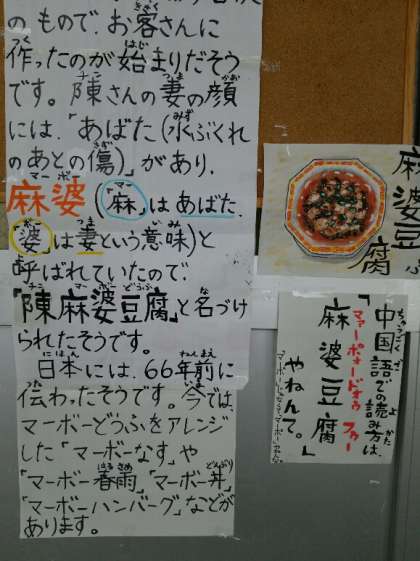 のもので、お客さんに
作ったのが始まりだそう
です。陳さんの妻の顔
には、「あばた（水ぶくれ
のあとの傷）」があり、
麻婆（「麻」はあばた、
「婆」は妻という意味）と
呼ばれていたので、
「陳麻婆豆腐」と名づけ
られたそうです。
日本には、66年前に
伝わったそうです。今では、
マーボーどうふをアレンジ
した「マーボーなす」や
「マーボー春雨」「マーボー丼」
「マーボーハンバーグ」などが
あります。
麻婆豆腐
中国語での読み方は、
「マァーポォードォゥフゥー
麻婆豆腐」
やねんて。